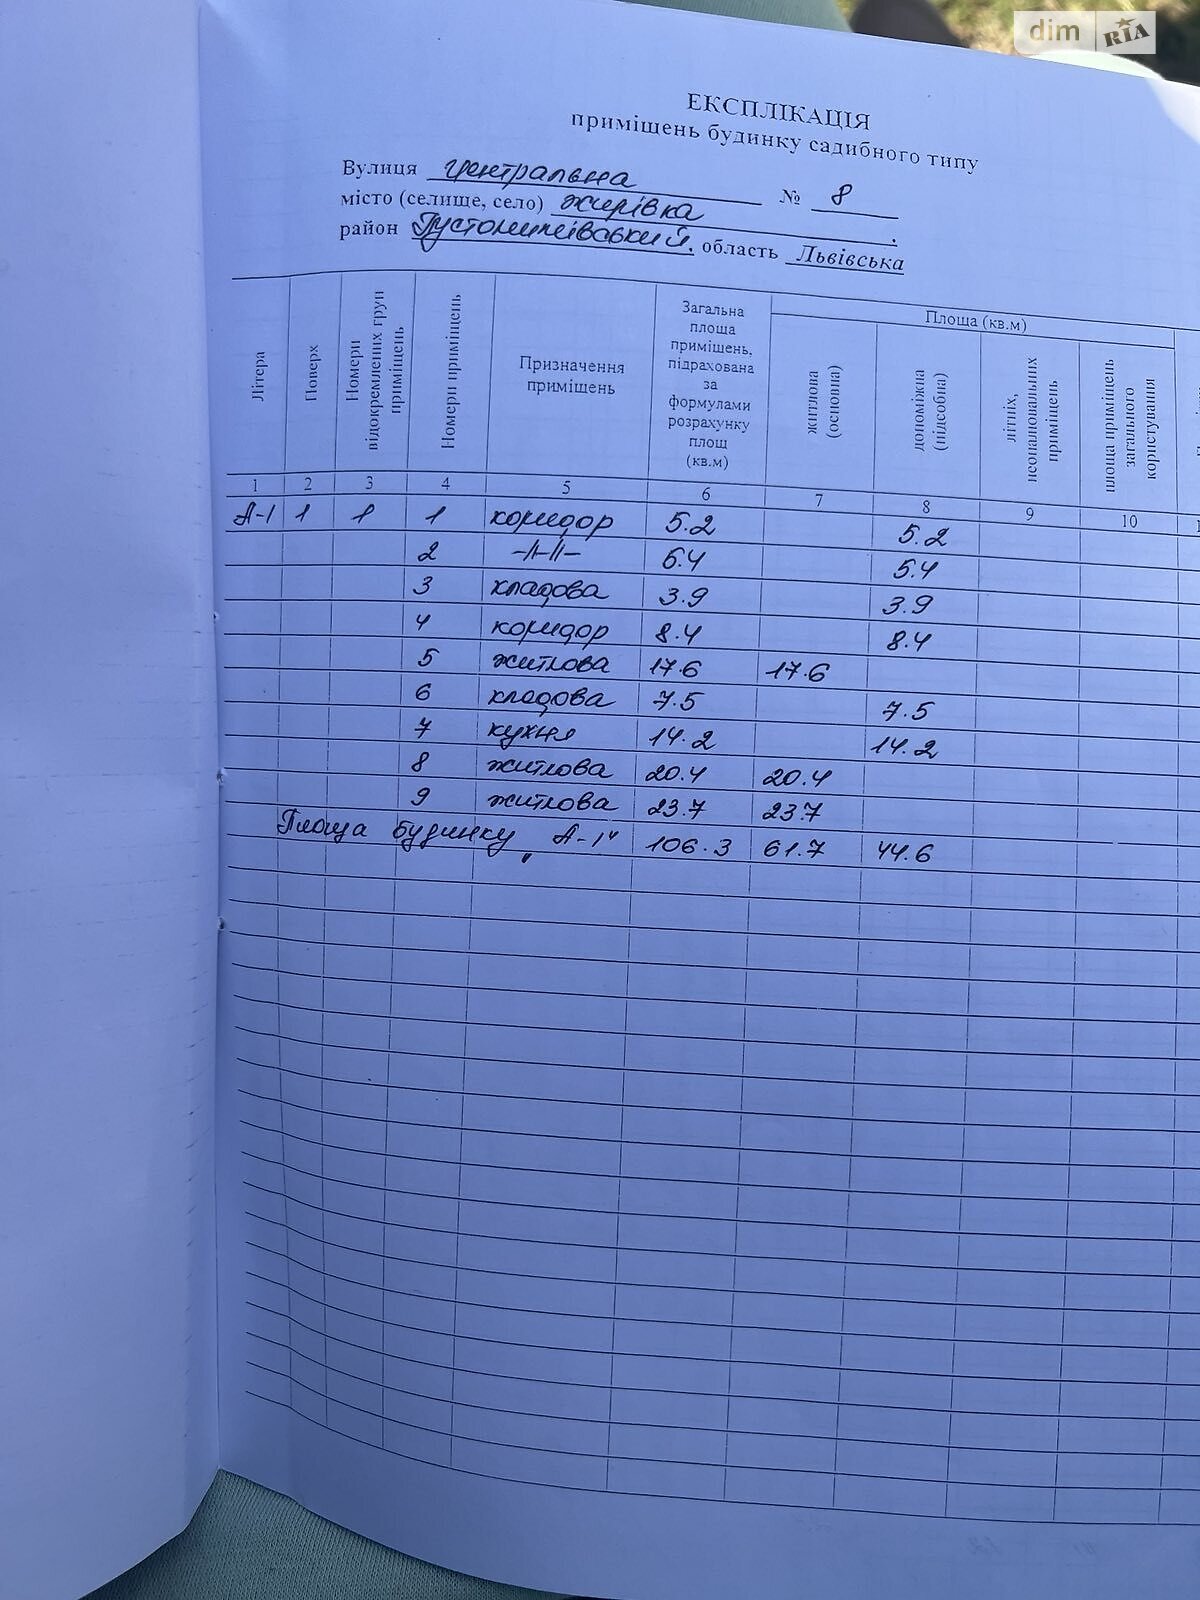 dim RIA
ЕКСПЛІКАЦІЯ
приміщень будинку садибного типу
Вулиця Центральна № 8
місто (селище, село) Жирівка
район Пустомитівський, область Львівська
Літера Поверх Номери відокремлених груп приміщень Номери приміщень Призначення приміщень Загальна площа приміщень, підрахована за формулами розрахунку площ (кв.м) Площа (кв.м) житлова (основна) допоміжна (підсобна) літніх, неопалювальних приміщень площа приміщень загального користування
1 2 3 4 5 6 7 8 9 10
А-1 1 1 1 коридор 5.2 5.2
2 -//-//- 5.4 5.4
3 кладова 3.9 3.9
4 коридор 8.4 8.4
5 житлова 17.6 17.6
6 кладова 7.5 7.5
7 кухня 14.2 14.2
8 житлова 20.4 20.4
9 житлова 23.7 23.7
Площа будинку „А-1" 106.3 61.7 44.6